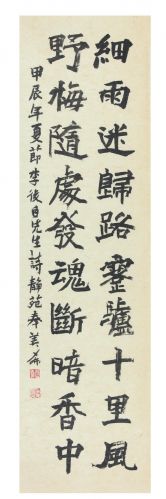 細雨迷歸路蹇驢十里風
野梅隨處發魂斷暗香中
甲辰年夏節李後白先生詩靜苑奉美